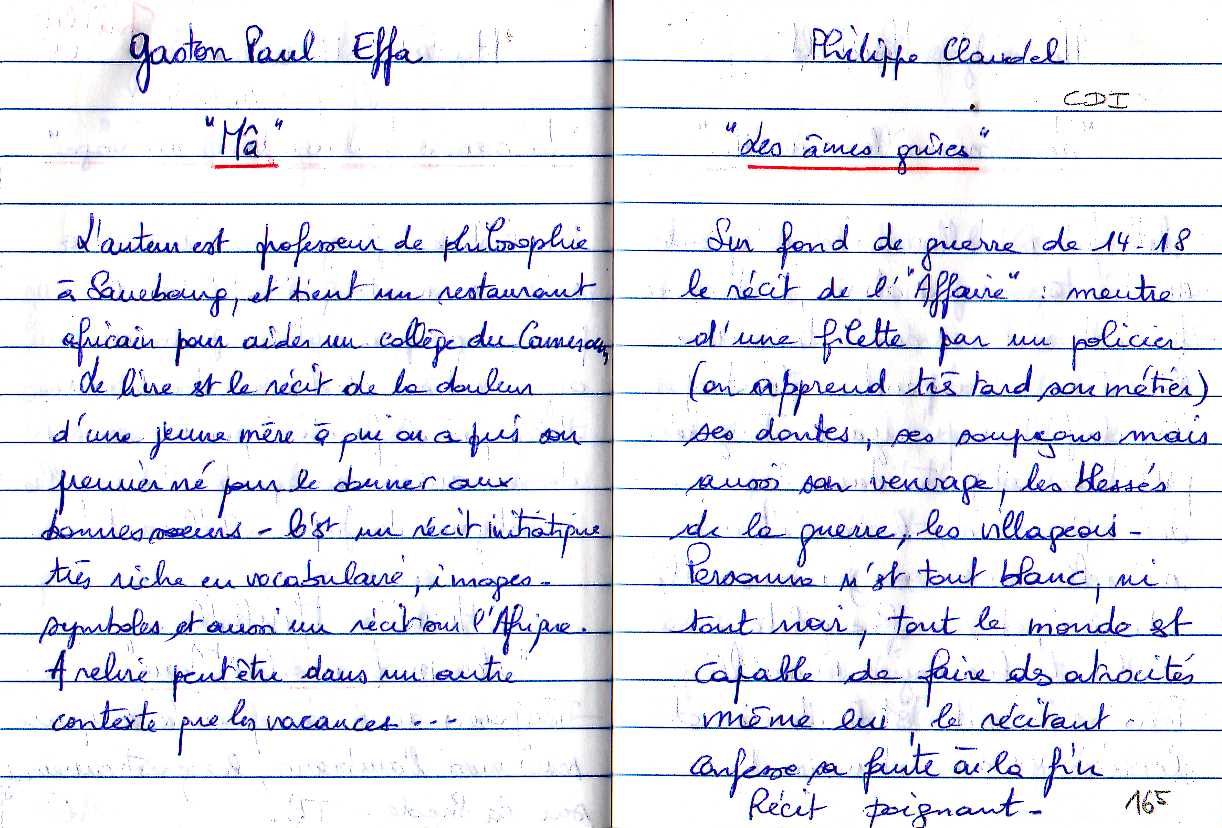 Gaston Paul Effa
"Mâ"
L'auteur est professeur de philosophie
à Sarrebourg, et tient un restaurant
africain pour aider un collège du Cameroun,
Le livre est le récit de la douleur
d'une jeune mère à qui on a pris son
premier né pour le donner aux
bonnes soeurs - C'est un récit initiatique
très riche en vocabulaire, images -
symboles et aussi un récit sur l'Afrique.
A relire peut être dans un autre
contexte que les vacances ---
Philippe Claudel
CDI
"des âmes grises"
Sur fond de guerre de 14-18
le récit de l'"Affaire" : meutre
d'une filette par un policier
(on apprend très tard son métier)
ses doutes, ses soupçons mais
aussi son veuvage, les blessés
de la guerre, les villageois -
Personne n'est tout blanc, ni
tout noir, tout le monde est
capable de faire des atrocités
même lui, le récitant
confesse sa faute à la fin
Récit poignant -
165